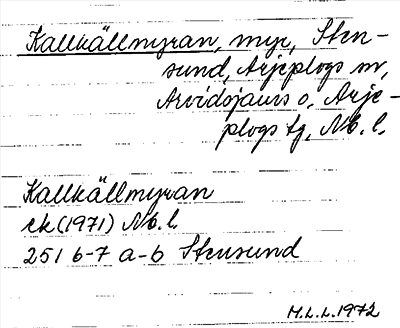 Kallkällmyran, myr, Sten-
sund, Arjeplogs sn,
Arvidsjaurs o. Arje-
plogs tg, Nb. l.
Kallkällmyran
ek (1971) Nb. l.
25I 6-7 a-b Stensund
M.L.L. 1972